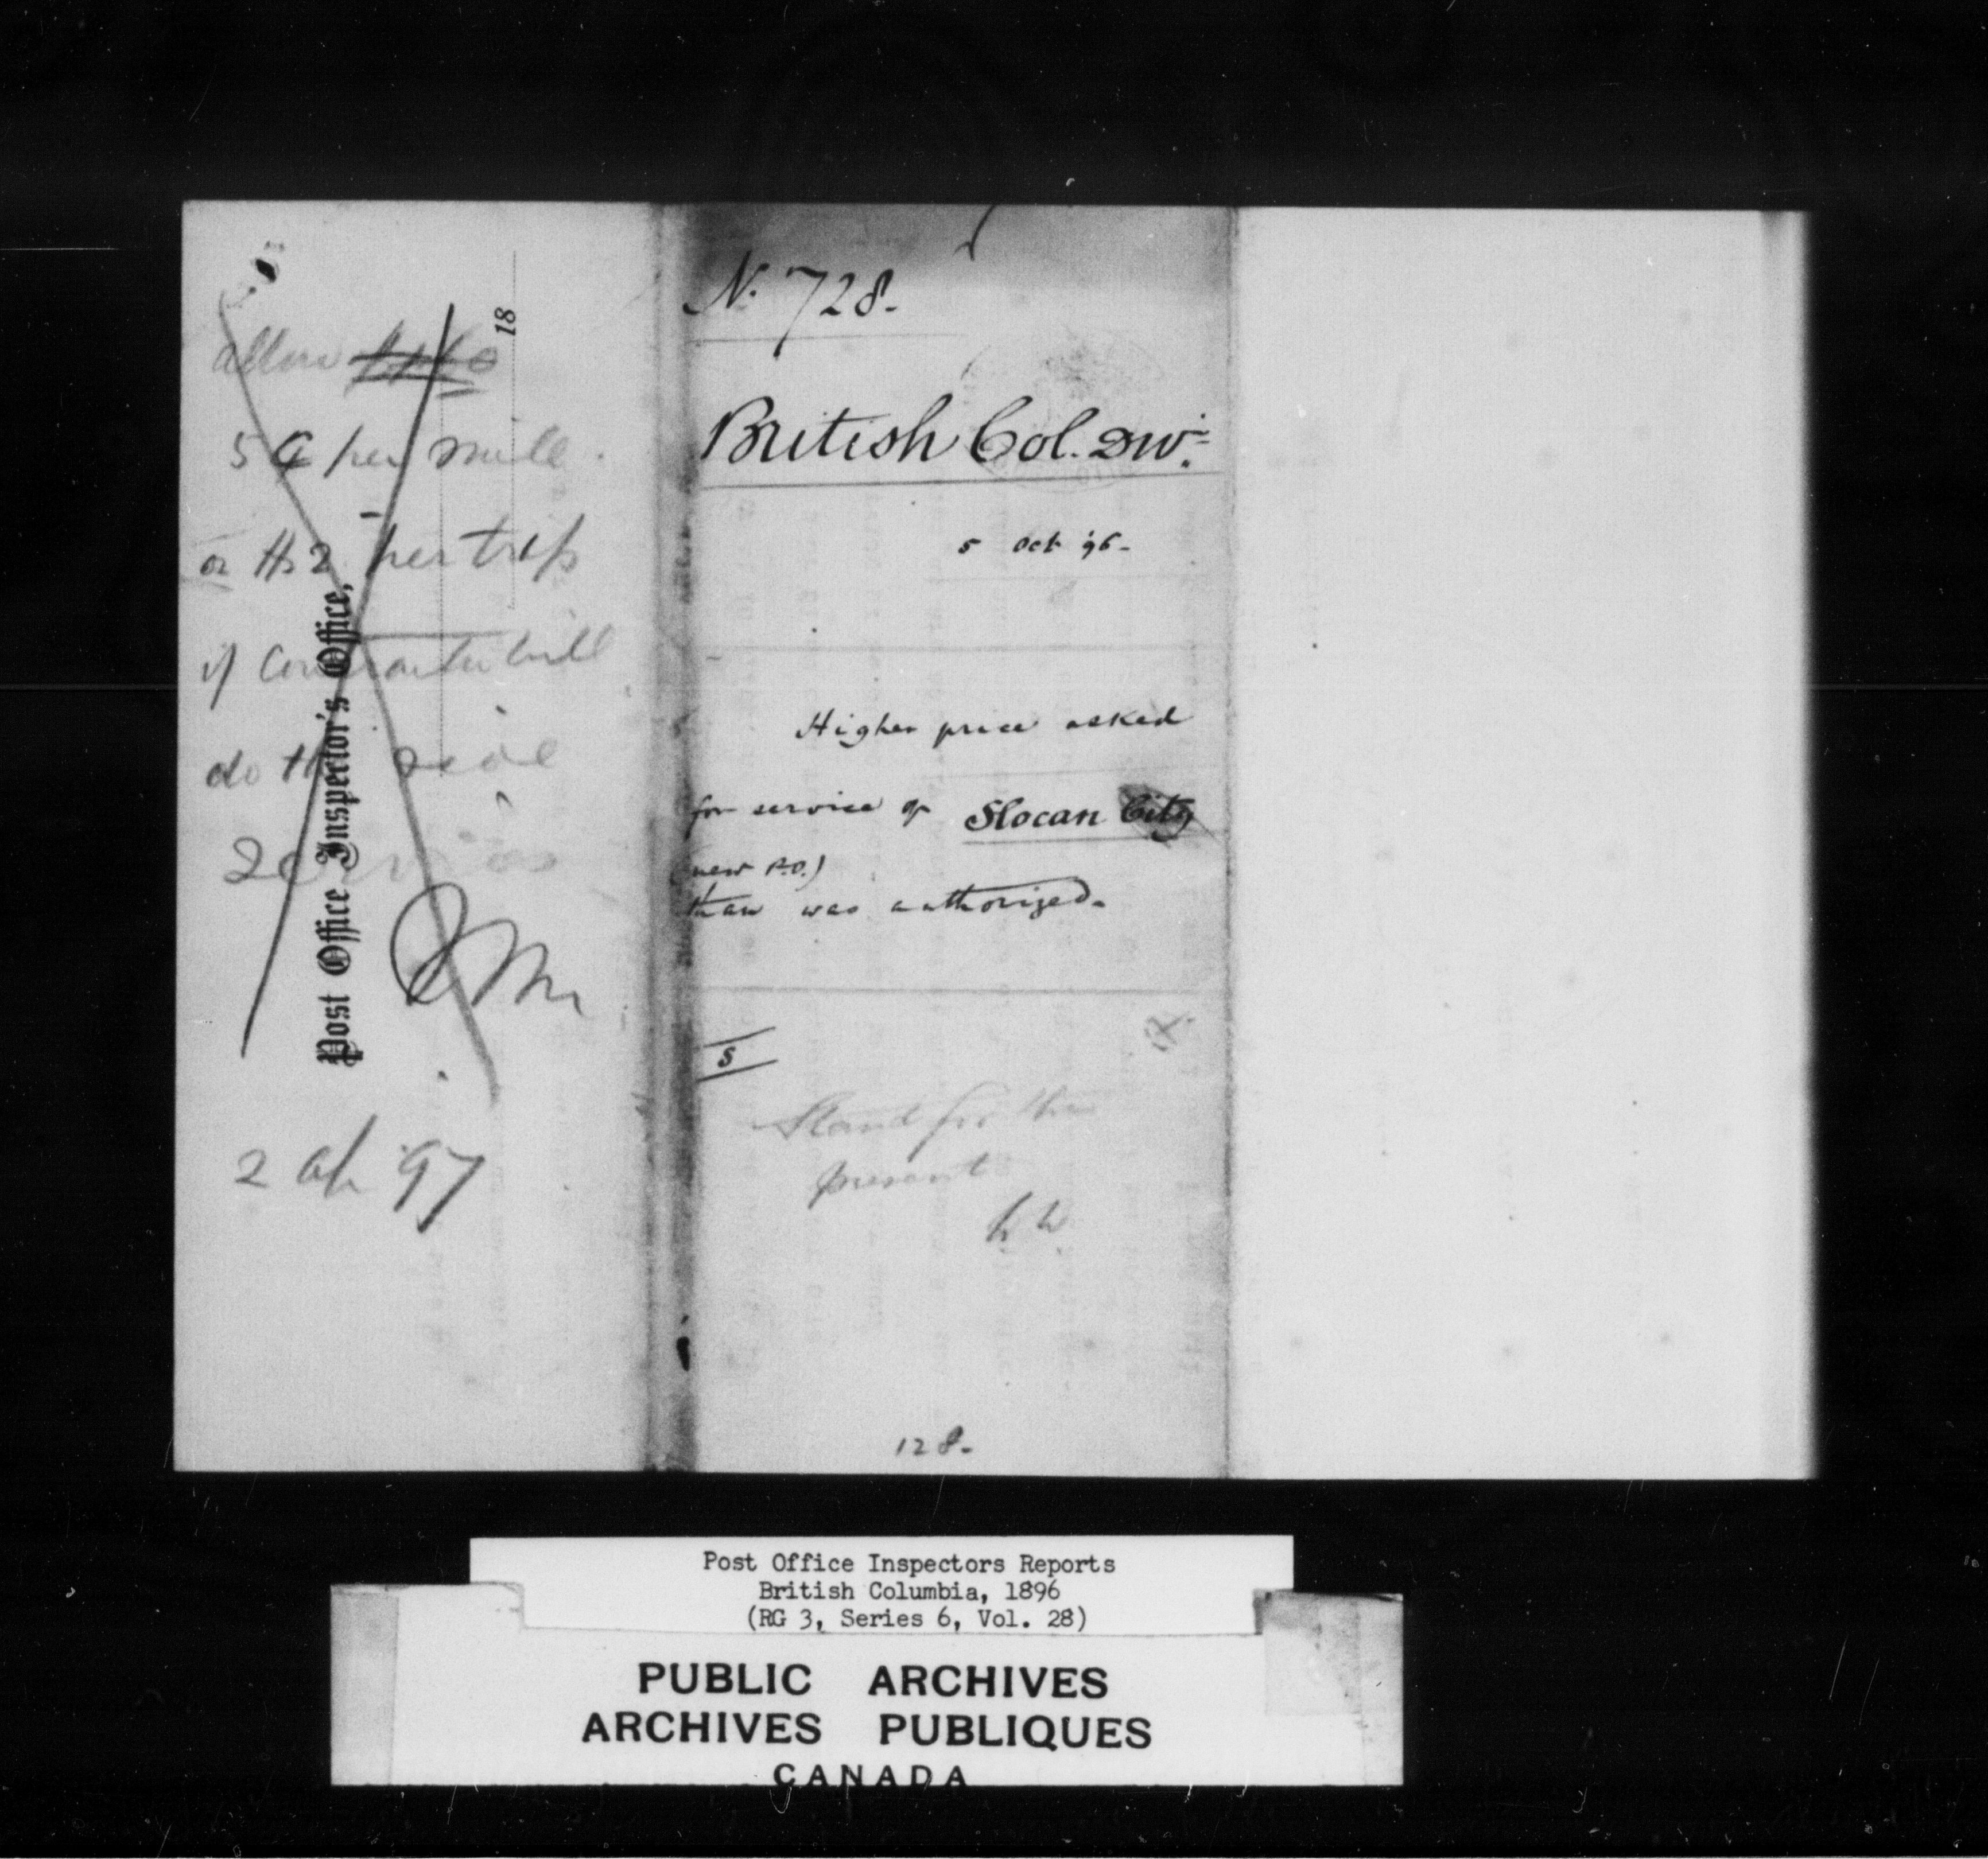 allow
5 ¢ per mile.
or $2 per trip
if Contractor will
do the
Service
2 Ap 97
Post Office Inspector's Office,
18
No. 728.
British Col. Dw.
5 Oct '96-
Higher price asked
for service of Slocan City
(new P.O.)
than was authorized.
5
Stand for the
present
128-
Post Office Inspectors Reports
British Columbia, 1896
(RG 3, Series 6, Vol. 28)
PUBLIC ARCHIVES
ARCHIVES PUBLIQUES
CANADA